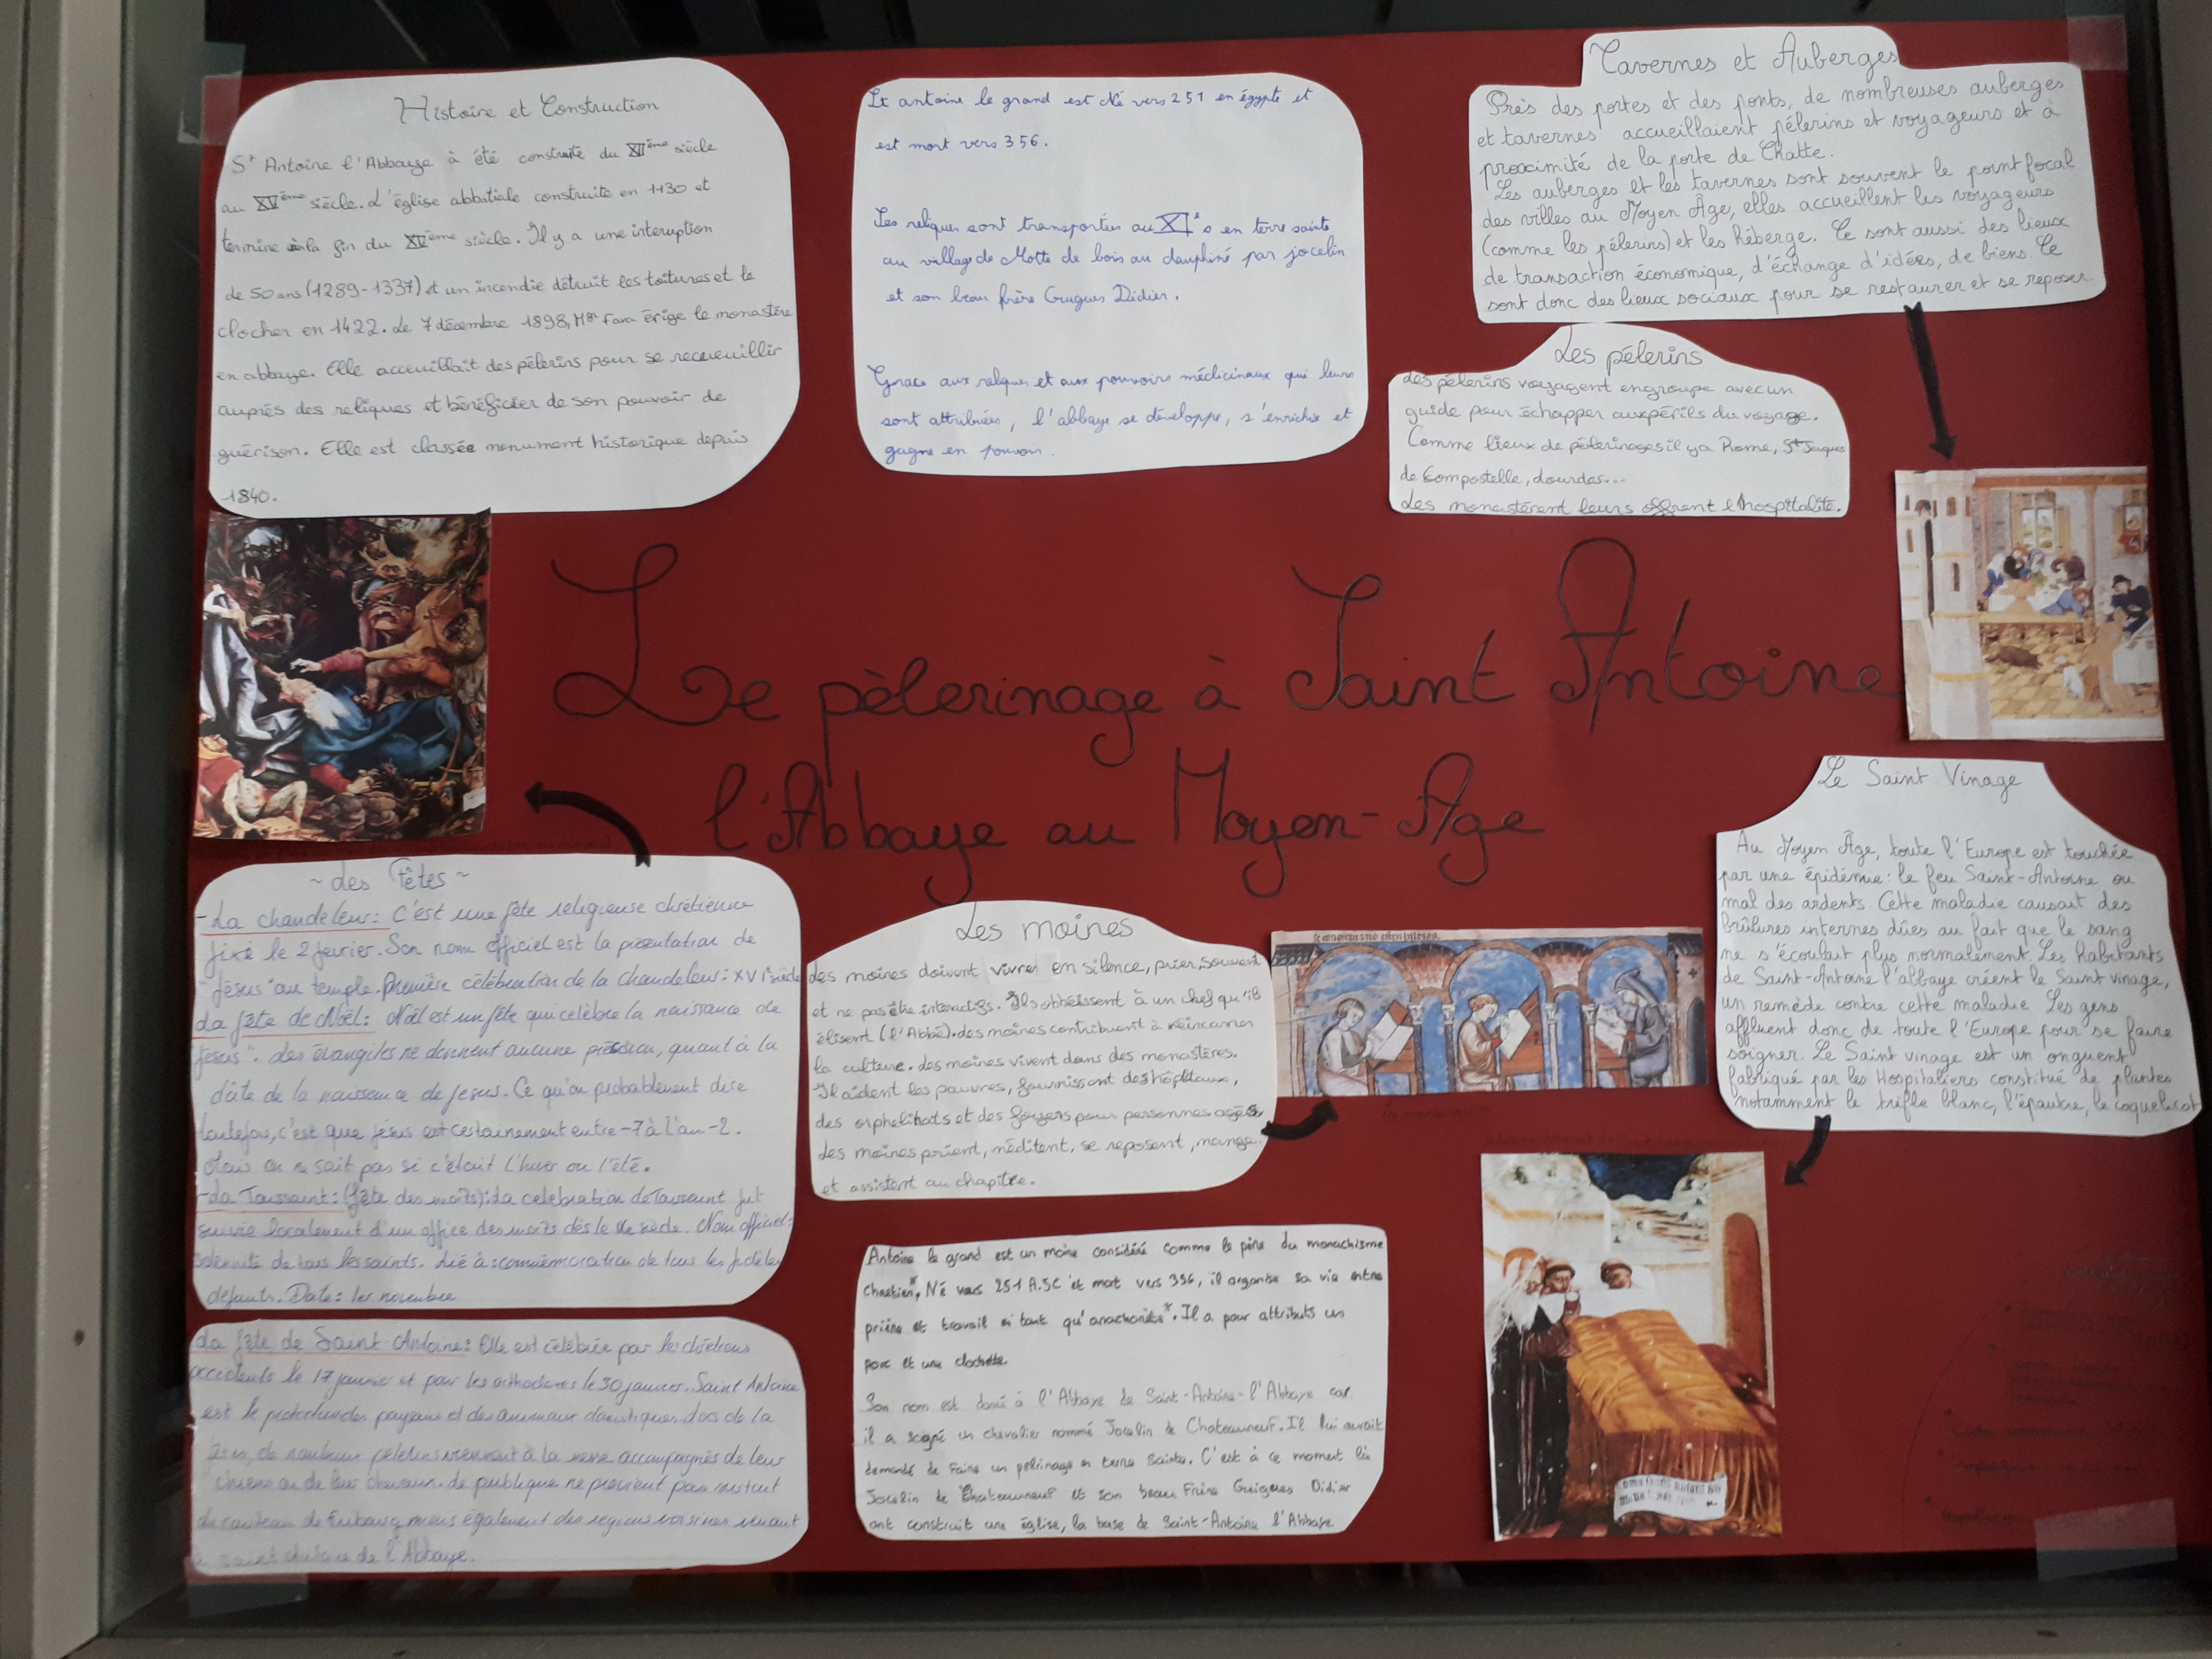 Histoire et Construction
St Antoine l'Abbaye à été construite du XIIème siècle
au XVème siècle. L'église abbatiale construite en 1130 et
termine à la fin du XVème siècle. Il y a une interuption
de 50 ans (1289-1337) et un incendie détruit les toitures et le
clocher en 1422. Le 7 décembre 1898, Mgr Fava érige le monastère
en abbaye. Elle acceuillait des pélerins pour se recueuillir
auprés des reliques et bénéficier de son pouvoir de
guérison. Elle est classée monument historique depuis
1840.
St antoine le grand est Né vers 251 en égypte et
est mort vers 356.
Les reliques sont transportées au XIe s en terre sainte
au village de Motte de bois au dauphiné par jocelin
et son beau frère Guigues Didier.
Grace aux reliques et aux pouvoirs médicinaux qui leurs
sont attribuées, l'abbaye se développe, s'enrichie et
gagne en pouvoir.
Tavernes et Auberges
Près des portes et des ponts, de nombreuses auberges
et tavernes accueillaient pélerins et voyageurs et à
proximité de la porte de Chatte.
Les auberges et les tavernes sont souvent le point focal
des villes au Moyen Âge, elles accueillent les voyageurs
(comme les pélerins) et les héberge. Ce sont aussi des lieux
de transaction économique, d'échange d'idées, de biens. Ce
sont donc des lieux sociaux pour se restaurer et se reposer.
Les pélerins
Les pélerins voyagent en groupe avec un
guide pour échapper aux périls du voyage.
Comme lieux de pélerinages il y a Rome, St Jacques
de Compostelle, Lourdes...
Les monastèrent leurs offrent l'hospitalité.
Le pèlerinage à Saint Antoine
l'Abbaye au Moyen-Age
~ Les Fêtes ~
- La chandeleur: C'est une fête religieuse chrétienne
fixé le 2 fevrier. Son nom officiel est la présentation de
"Jésus" au temple. Première célébration de la chandeleur: XVIe siècle
La fête de Noël: Noël est un fête qui célèbre la naissance de
"Jesus". Les évangiles ne donnent aucune précision, quant à la
dâte de la naissance de Jesus. Ce qu'on probablement dire
toutefois, c'est que Jesus est certainement entre -7 à l'an -2.
Mais on ne sait pas si c'était l'hiver ou l'été.
- La Toussaint: (fête des morts): La celebration de Toussaint fut
suivie localement d'un office des morts dès le siècle. Nom officiel:
solennité de tous les saints. Lié à: commémoration de tous les fidèles
défunts. Date: 1er novembre
La fête de Saint-Antoine: Elle est célébrée par les chrétiens
occidents le 17 janvier et par les orthodoxes le 30 janvier. Saint Antoine
est le protecteur des paysans et des animaux domestiques. Lors de la
fête, de nombreux pélerins viennent à la messe accompagnés de leur
chiens ou de leur chevaux. Le publique ne provient pas surtout
du canton de Fribourg, mais également des regions voisines venant
à saint Antoine de l'Abbaye.
Les moines
Les moines doivent vivre en silence, prier souvent
et ne pas être interactifs. Ils obbéissent à un chef qu'ils
élisent (l'Abbé). Les moines contribuent à
la culture. Les moines vivent dans des monastères.
Il aident les pauvres, fournissent des hôpitaux,
des orphelinats et des foyers pour personnes agés
Les moines prient, méditent, se reposent, mange
et assistent au chapitre.
Antoine le grand est un moine considéré comme le père du monachisme
Chretien*, Né vers 251 A.JC et mort vers 356, il organise sa vie entre
prière et travail en tant qu'anachorète*. Il a pour attributs un
porc et une clochette.
Son nom est doné à l'Abbaye de Saint-Antoine-l'Abbaye car
il a un chevalier nommé Jocelin de Chateauneuf. Il lui aurait
demandé de faire un pelrinage en terre Sainte. C'est à ce moment là
Jocelin de Chateauneuf et son beau Frère Guigues Didier
ont construit une église, la base de Saint-Antoine l'Abbaye
Le Saint Vinage
Au Moyen Âge, toute l'Europe est touchée
par une épidémie: le feu Saint-Antoine ou
mal des ardents. Cette maladie causait des
brûlures internes dûes au fait que le sang
ne s'écoulait plus normalement. Les habitants
de Saint-Antoine l'abbaye créent le Saint vinage,
un remède contre cette maladie. Les gens
affluent donc de toute l'Europe pour se faire
soigner. Le Saint vinage est un onguent
fabriqué par les Hospitaliers constitué de plantes
notamment le trèfle blanc, l'épautre, le coquelicot